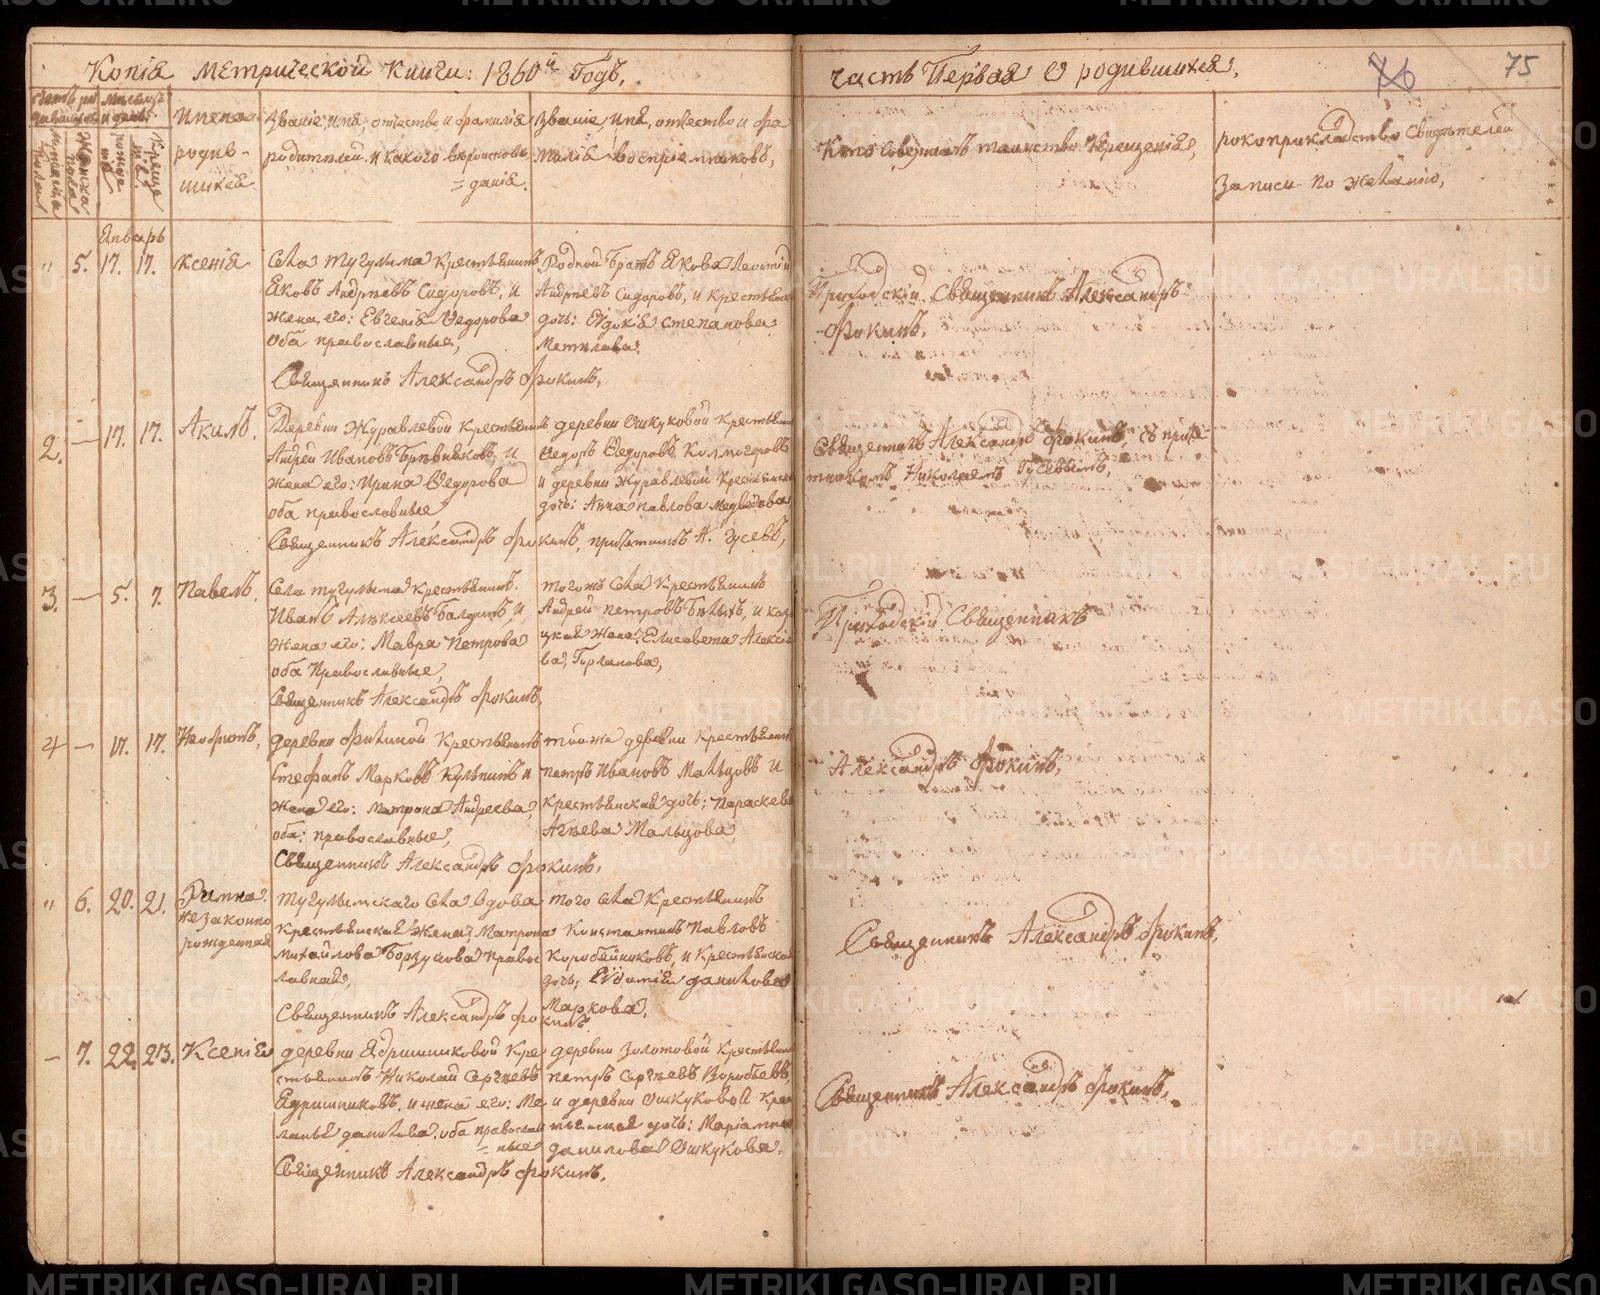 Копія метрической книги: 1860й Годъ,
часть Первая О родившихся,
76
75
Счетъ родившихся
мужеска пола
женска пола
Месяцъ и день.
рожденія
крещенія
Имена
родив-
шихся
Званіе, имя, отчество и фамилія
родителей. и какого вероисповѣ
=данія.
Званіе, имя, отчество и фа
милія воспріемниковъ,
Кто совершалъ таинство Крещенія,
рукоприкладство свидѣтелей
записи по желанію,
Январь
" 5. 17. 17. Ксенія
Села тугулыма крестьянинъ
Яковъ Андреевъ Сидоровъ, и
жена его: Евгенія Ѳедорова
оба православные,
Священникъ Александръ Фокинъ,
Родной братъ Якова Леонтій
Андреевъ Сидоровъ, и крестьянск
дочь: Евдокія Степанова
Метелева.
Приходскій Священникъ Александръ
Фокинъ.
2. — 17. 17. Акилъ.
Деревни Журавлевой крестьянинъ
Андрей Ивановъ Бревновковъ, и
жена его: Ирина Ѳедорова
оба православные
Священникъ Александръ Фокинъ, причетникъ Н. Гусевъ,
деревни Ошкуковой крестьянин
Ѳедоръ Ѳедоровъ Колмогоровъ
и деревни Журавлевой крестьянск
дочь: Анна Павлова Медведева
Священникъ Александръ Фокинъ, съ приче
тникомъ Николаемъ Гусевымъ,
3. — 5. 7. Павелъ.
Села тугулыма крестьянинъ.
Иванъ Алексеевъ Балдинъ, и
жена его: Мавра Петрова
оба Православные,
Священникъ Александръ Фокинъ,
того жъ Села Крестьянинъ
Андрей Петровъ Белыхъ, и каз
цкая жена: Елисавета Алексее
ва, Горланова,
Приходскій Священникъ
4 — 17. 17. Неофитъ,
деревни Филиной Крестьянинъ
Стефанъ Марковъ Кульпинъ и
жена его: Матрона Андреева,
оба: православные,
Священникъ Александръ Фокинъ,
тойже деревни Крестьянинъ
Петръ Ивановъ Мальцовъ и
крестьянская дочь: Параскева
Агеева Мальцова,
Александръ Фокинъ,
" 6. 20. 21. Римма
незаконно
рожденная
Тугулымскаго Села вдова
крестьянская жена Матрона
Михайлова Борзунова правос
лавная,
Священникъ Александръ Фо
кинъ
того Села Крестьянинъ
Константинъ Павловъ
Коробейниковъ, и Крестьянска
дочь, Евѳимія данилова
Маркова,
Священникъ Александръ Фокинъ,
— 7. 22. 23. Ксенія
деревни Ядришниковой Кре
стьянинъ Николай Сергѣевъ
Ядришниковъ, и жена его: Ме
ланья данилова, оба православ
=ные
Священникъ Александръ Фокинъ.
деревни Золотовой крестьянин
петръ Сергѣевъ Воробьевъ,
и деревни Ошкуковой крес
тьянская дочь: Маріамна
данилова Ошкукова,
Священникъ Александръ Фокинъ.
METRIKI.GASO-URAL.RU